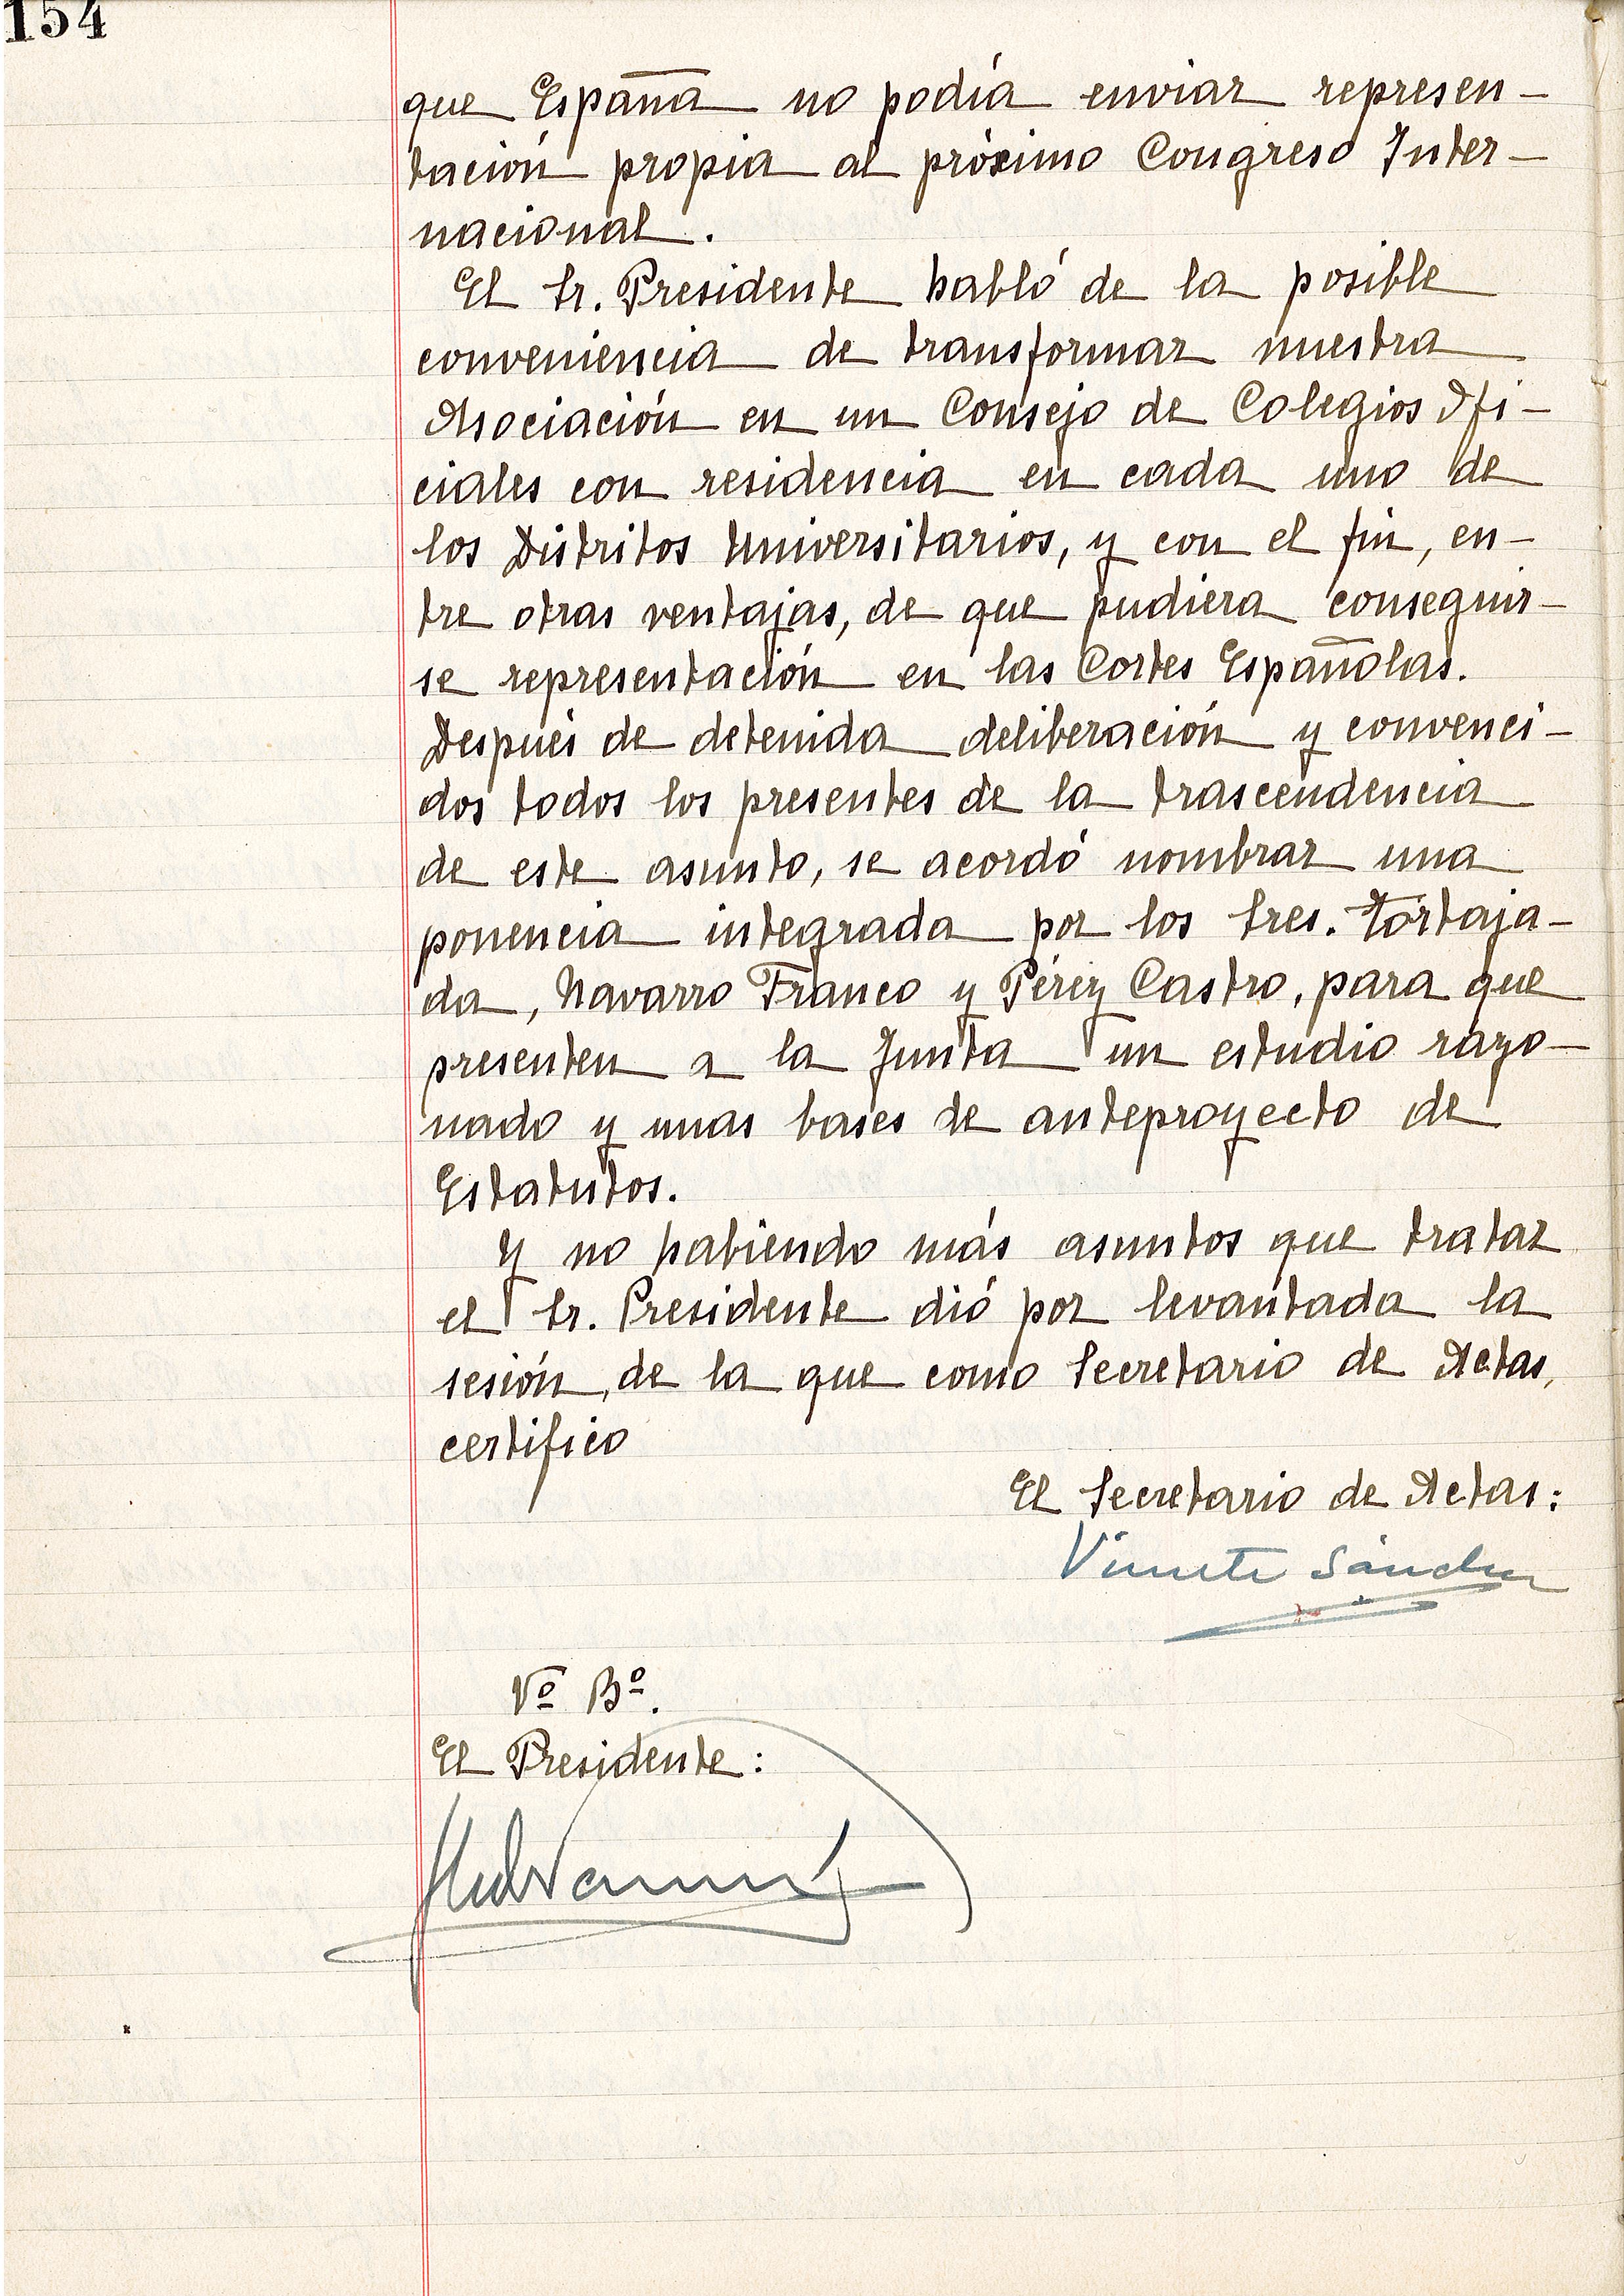 154
que España no podía enviar represen-
tación propia al próximo Congreso Inter-
nacional.
El Sr. Presidente habló de la posible
conveniencia de transformar nuestra
Asociación en un Consejo de Colegios Ofi-
ciales con residencia en cada uno de
los Distritos Universitarios, y con el fin, en-
tre otras ventajas, de que pudiera conseguir-
se representación en las Cortes Españolas.
Después de detenida deliberación y convenci-
dos todos los presentes de la trascendencia
de este asunto, se acordó nombrar una
ponencia integrada por los Sres. Tortaja-
da, Navarro Franco y Pérez Castro, para que
presenten a la Junta un estudio razo-
nado y unas bases de anteproyecto de
Estatutos.
Y no habiendo más asuntos que tratar
el Sr. Presidente dió por levantada la
sesión, de la que como Secretario de Actas,
certifico
El Secretario de Actas:
Vicente Sánchez
Vº Bº.
El Presidente: